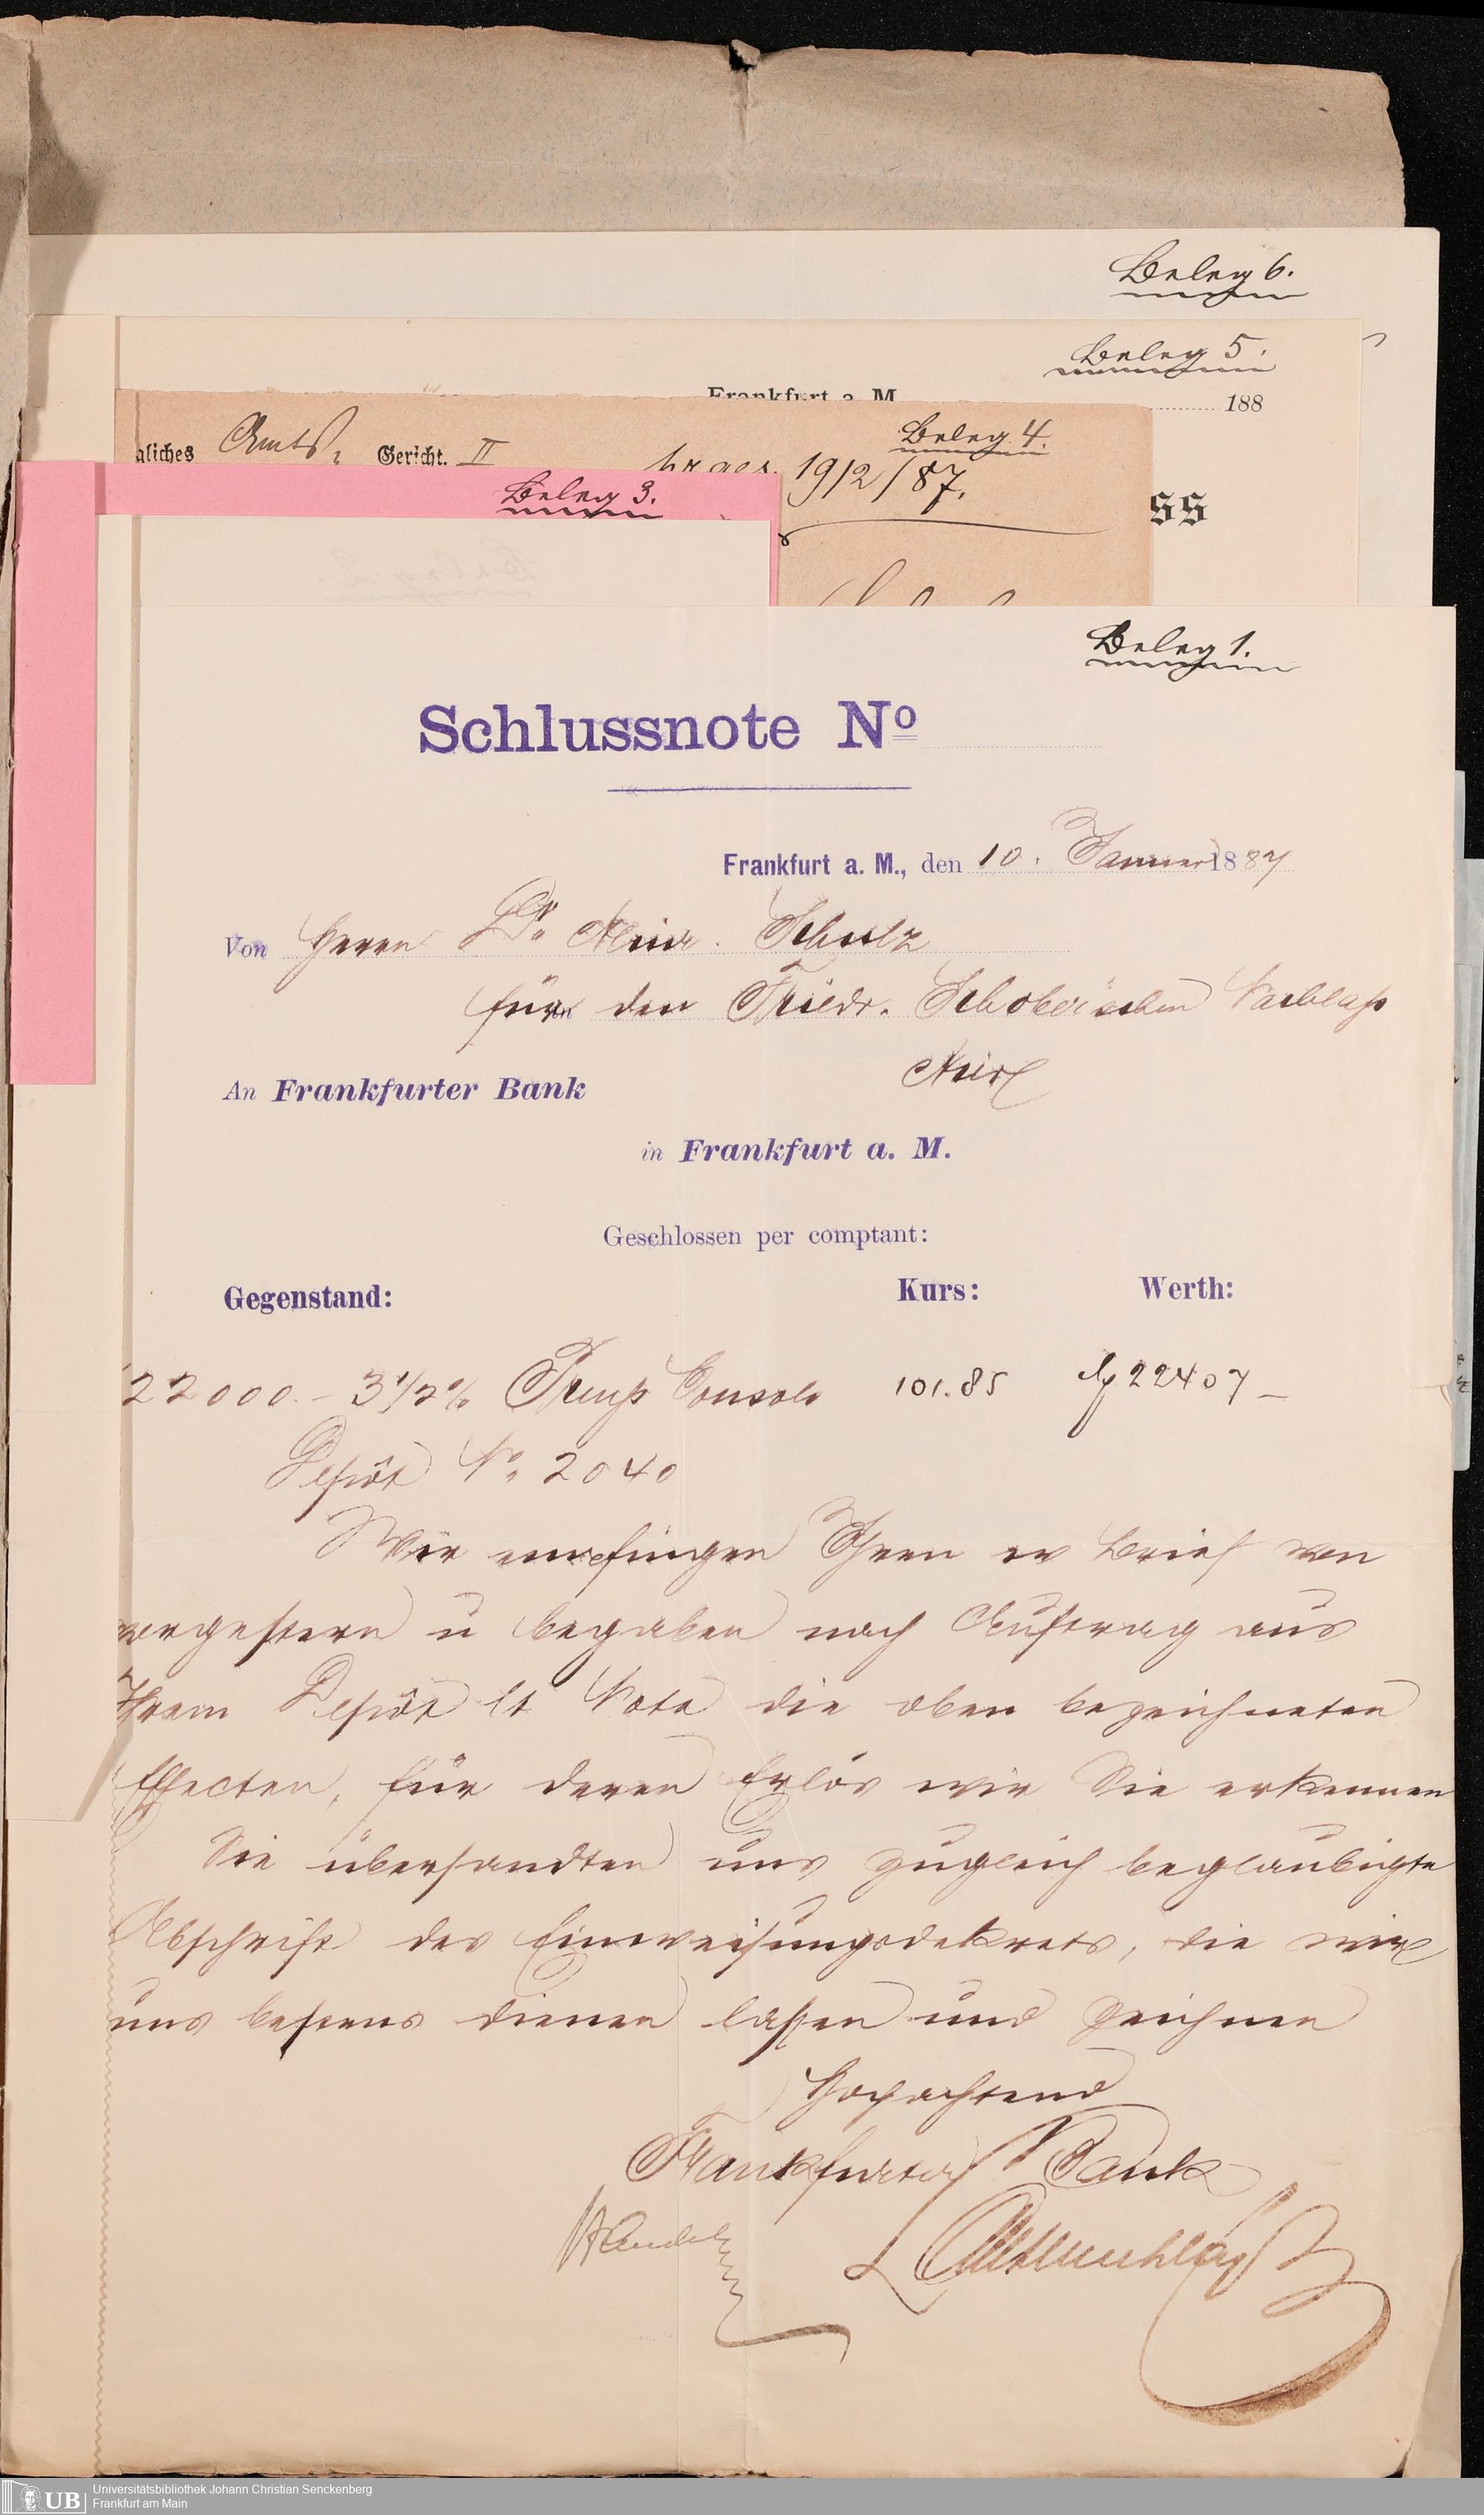 Beleg 6.
Beleg 5.
Frankfurt a. M.
188
Beleg 4.
gliches Amts. Gericht. II
19/2/87.
Beleg 3.
ss
Beleg 1.
Schlussnote No
Frankfurt a. M., den 10. Januar 1887
Von Herrn Dr. Schulz
für den Friedr. Schober'schen Nachlaß
hier
An Frankfurter Bank
in Frankfurt a. M.
Geschlossen per comptant:
Gegenstand: Kurs: Werth:
22000.- 3 1/2 % Preuß Consols 101.85 22407 -
Depôt No. 2040
Wir empfingen Ihren Brief von
vorgestern u begaben nach Auftrag aus
Ihrem Depôt lt Nota die oben bezeichneten
Effecten, für deren Erlös wir Sie erkennen
Sie übersandten uns zugleich beglaubigte
Abschrift des Einweisungsdekrets, die wir
uns bestens dienen laßen und zeichnen
Hochachtend
Frankfurter Bank
UB Universitätsbibliothek Johann Christian Senckenberg
Frankfurt am Main